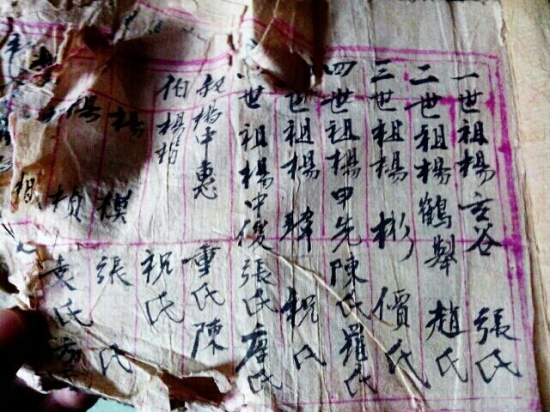 一世祖楊玄谷 張氏
二世祖楊鶴舉 趙氏
三世祖楊彬 價氏
四世祖楊甲先 陳氏 羅氏
世祖楊 祝氏
世祖楊中俊 張氏 廖氏
叔楊中惠 董氏 陳
伯楊 祝氏
楊棋 張氏
楊楨 袁氏
祖